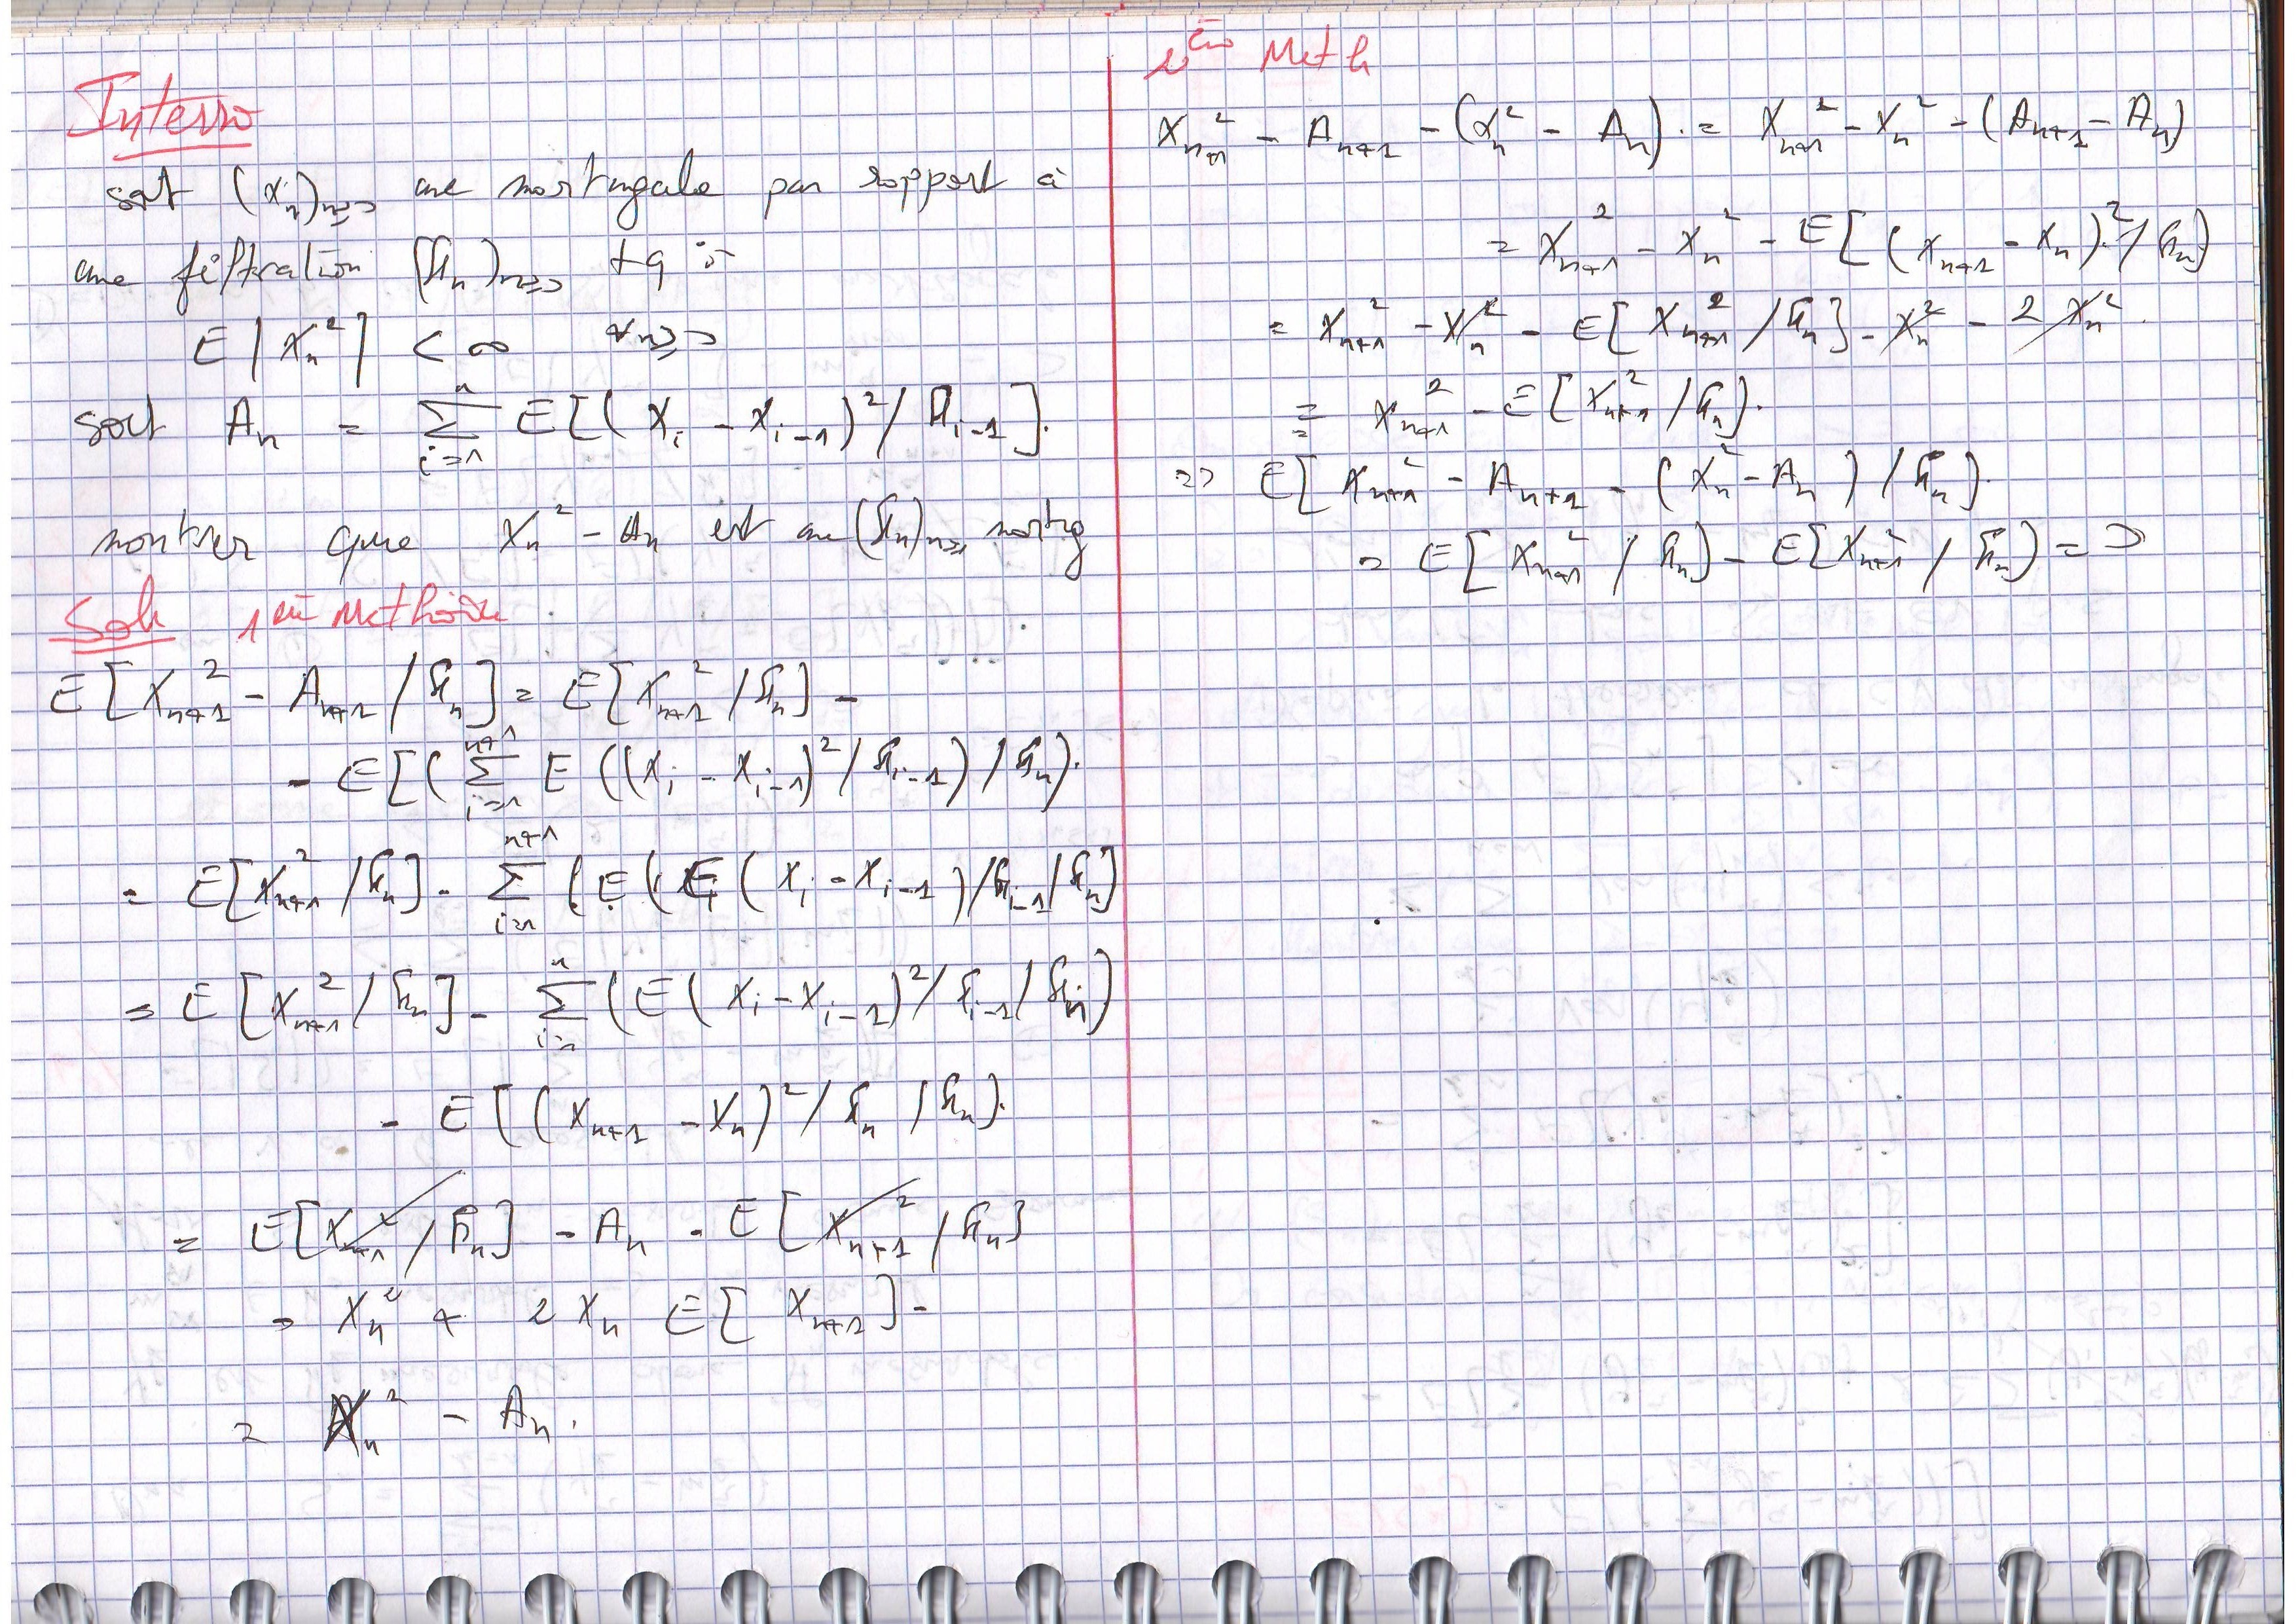 Interro
soit (X_n)_{n≥0} une martingale par rapport à
une filtration (F_n)_{n≥0} tq :
E|X_n^2| < ∞ ∀n≥0
soit A_n = Σ_{i=1}^{n} E[(X_i - X_{i-1})^2 / F_{i-1}].
montrer que X_n^2 - A_n est une (F_n)_{n≥1} marting
Sol 1ère Methode
E[X_{n+1}^2 - A_{n+1} / F_n] = E[X_{n+1}^2 / F_n] -
- E[(Σ_{i=1}^{n+1} E((X_i - X_{i-1})^2 / F_{i-1}) / F_n).
= E[X_{n+1}^2 / F_n] - Σ_{i=1}^{n+1} (E(E(X_i - X_{i-1}) / F_{i-1} / F_n]
= E[X_{n+1}^2 / F_n] - Σ_{i=1}^{n} (E(X_i - X_{i-1})^2 / F_{i-1} / F_n)
- E[(X_{n+1} - X_n)^2 / F_n / F_n).
= E[X_{n+1}^2 / F_n] - A_n - E[X_{n+1}^2 / F_n]
- X_n^2 + 2 X_n E[X_{n+1}] -
= X_n^2 - A_n.
2ème Meth
X_{n+1}^2 - A_{n+1} - (X_n^2 - A_n). = X_{n+1}^2 - X_n^2 - (A_{n+1} - A_n)
= X_{n+1}^2 - X_n^2 - E[(X_{n+1} - X_n)^2 / F_n]
= X_{n+1}^2 - X_n^2 - E[X_{n+1}^2 / F_n] - X_n^2 - 2 X_n^2.
= X_{n+1}^2 - E[X_{n+1}^2 / F_n).
=> E[X_{n+1}^2 - A_{n+1} - (X_n^2 - A_n) / F_n].
= E[X_{n+1}^2 / F_n) - E[X_{n+1}^2 / F_n) = 0